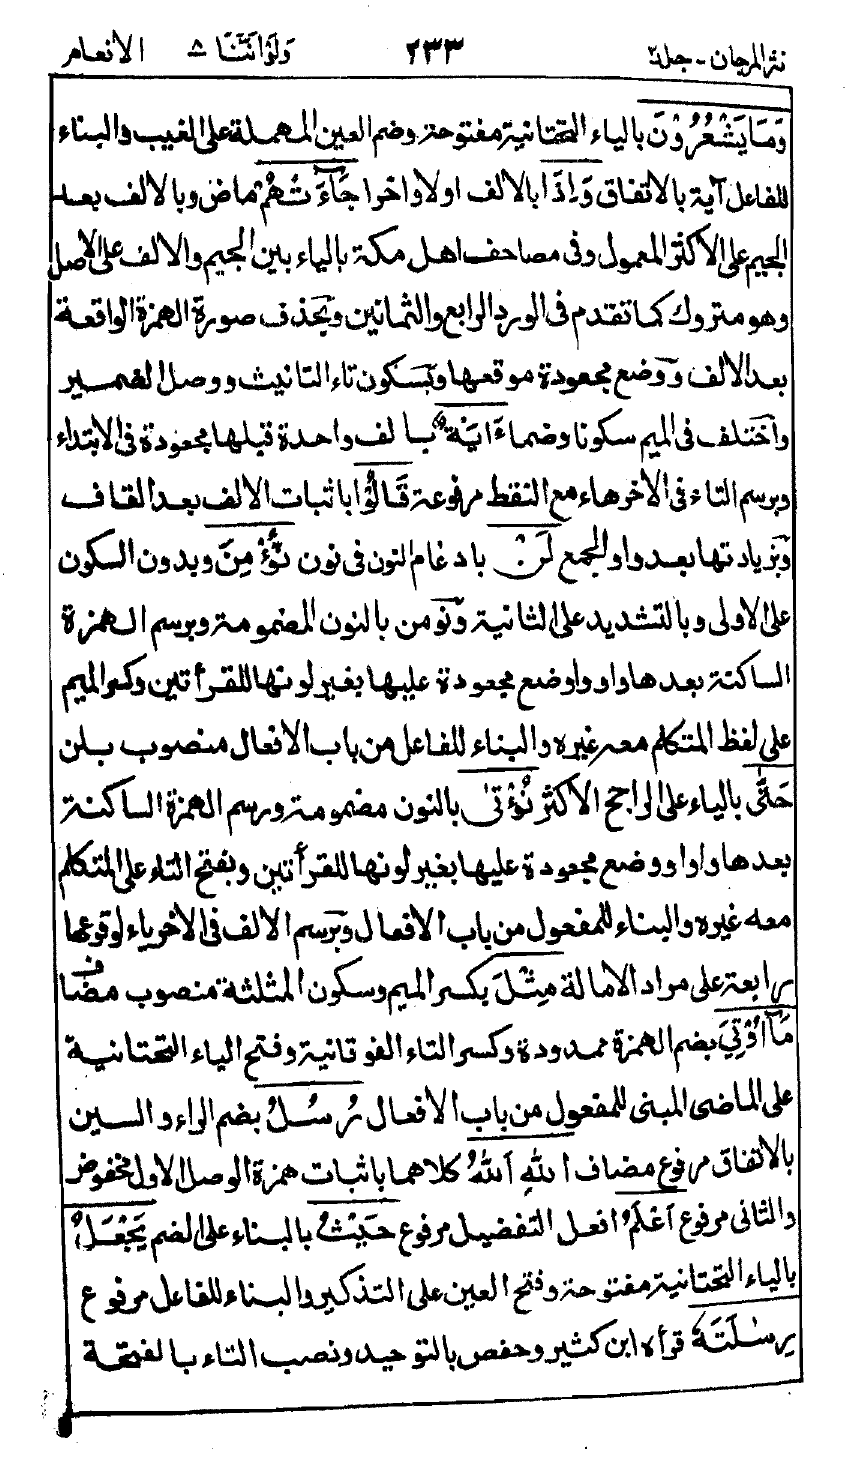 نثر المرجان - جلد ٢ ٢٣٣ ولواننا ٨ الانعام
وَمَا يَشْعُرُوْنَ بالياء التحتانية مفتوحة وضم العين المهملة على الغيب والبناء
للفاعل آية بالاتفاق وَاِذَا بالالف اولا واخرا جَآءَتْهُمْ ماض وبالالف بعد
الجيم على الاكثر المعمول وفى مصاحف اهل مكة بالياء بين الجيم والالف على الاصل
وهو متروك كما تقدم فى الورد الرابع والثمانين وبحذف صورة الهمزة الواقعة
بعد الالف ووضع مجعودة موقعها وبسكون تاء التانيث ووصل الضمير
واختلف فى الميم سكونا وضما ءَايَةٌ بالف واحدة قبلها مجعودة فى الابتداء
وبرسم التاء فى الاخر هاء مع النقط مرفوعة قَالُوْا باثبات الالف بعد القاف
وبزيادتها بعد واو الجمع لَنْ بادغام النون فى نون نُّؤْمِنَ وبدون السكون
على الاولى وبالتشديد على الثانية ونؤمن بالنون المضمومة وبرسم الهمزة
الساكنة بعدها واوا ووضع مجعودة عليها بغير لونها للقرأتين وكسر الميم
على لفظ المتكلم معه غيره والبناء للفاعل من باب الافعال منصوب بلن
حَتّٰى بالياء على الراجح الاكثر نُؤْتٰى بالنون مضمومة ورسم الهمزة الساكنة
بعدها واوا ووضع مجعودة عليها بغير لونها للقرأتين وبفتح التاء على المتكلم
معه غيره والبناء للمفعول من باب الافعال وبرسم الالف فى الاخر ياء لوقوعها
رابعة على مراد الامالة مِثْلَ بكسر الميم وسكون المثلثة منصوب مضاف
مَآ اُوْتِيَ بضم الهمزة ممدودة وكسر التاء الفوقانية وفتح الياء التحتانية
على الماضى المبنى للمفعول من باب الافعال رُسُلُ بضم الراء والسين
بالاتفاق مرفوع مضاف اللّٰهِ اَللّٰهُ كلاهما باثبات همزة الوصل الاول مخفوض
والثانى مرفوع اَعْلَمُ افعل التفضيل مرفوع حَيْثُ بالبناء على الضم يَجْعَلُ
بالياء التحتانية مفتوحة وفتح العين على التذكير والبناء للفاعل مرفوع
رِسٰلَتَهٗ قرأه ابن كثير وحفص بالتوحيد ونصب التاء بالفتحة